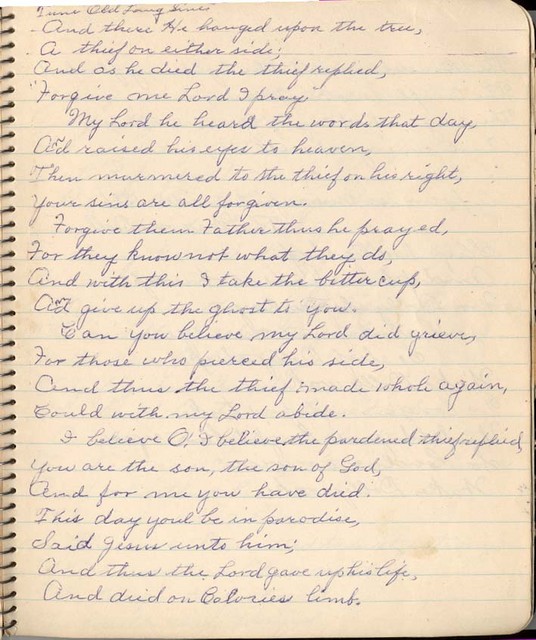 Tune Old Lang Sines
And there He hanged upon the tree,
A thief on either side;
And as he died the thief replied,
"Forgive me Lord I pray"
My Lord he heard the words that day,
And raised his eyes to heaven,
Then murmered to the thief on his right,
Your sins are all forgiven.
Forgive them Father thus he prayed,
For they know not what they do,
And with this I take the bitter cup,
And give up the ghost to you.
Can you believe my Lord did grieve,
For those who pierced his side,
And thus the thief made whole again,
Could with my Lord abide.
I believe O! I believe, the pardened thief replied,
You are the son, the son of God,
And for me you have died.
This day youl be in paradise,
Said Jesus unto him;
And thus the Lord gave up his life,
And died on Calvories limb.